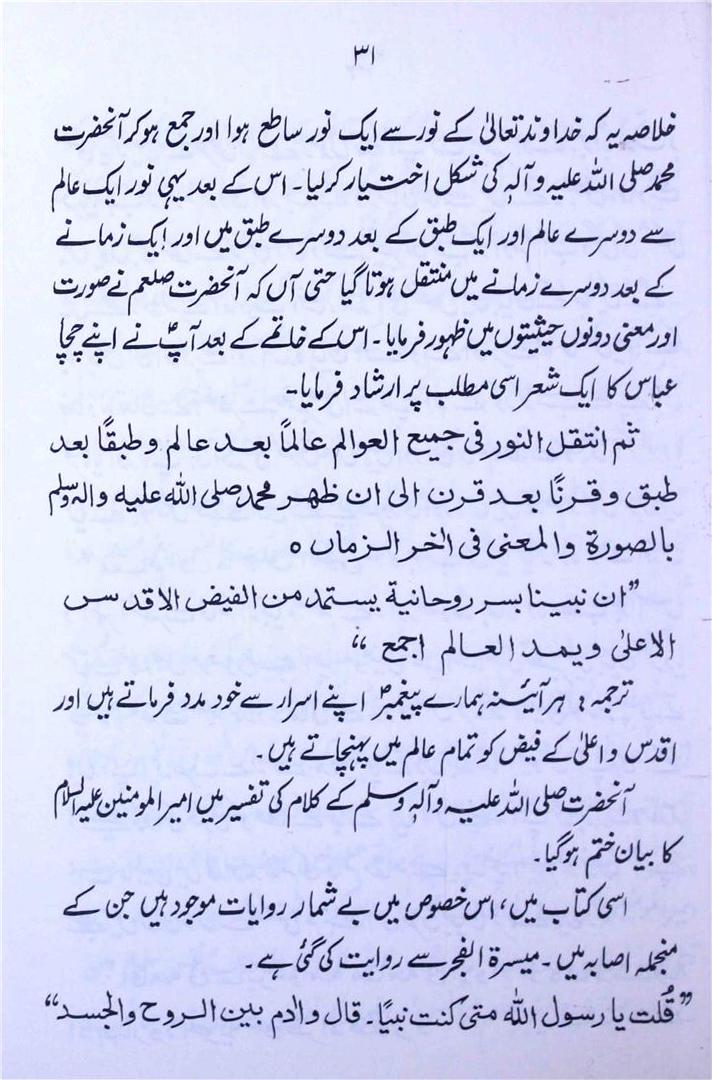 ۳۱
خلاصہ یہ کہ خداوند تعالیٰ کے نور سے ایک نور ساطع ہوا اور جمع ہو کر آنحضرت
محمد صلی اللہ علیہ و آلہٖ کی شکل اختیار کر لیا۔ اس کے بعد یہی نور ایک عالم
سے دوسرے عالم اور ایک طبق کے بعد دوسرے طبق میں اور ایک زمانے
کے بعد دوسرے زمانے میں منتقل ہوتا گیا حتیٰ آں کہ آنحضرت صلعم نے صورت
اور معنی دونوں حیثیتوں میں ظہور فرمایا۔ اس کے خاتمے کے بعد آپؐ نے اپنے چچا
عباس کا ایک شعر اسی مطلب پر ارشاد فرمایا۔
ثم انتقل النور فی جمیع العوالم عالماً بعد عالم و طبقًا بعد
طبق و قرنًا بعد قرن الی ان ظهر محمد صلی اللہ علیہ والہٖ وسلم
بالصورة والمعنی فی اٰخر الزمان ہ
”ان نبینا بسر روحانیة یستمد من الفیض الاقدس
الاعلیٰ و یمد العالم اجمع“
ترجمہ: ہر آئینہ ہمارے پیغمبرؐ اپنے اسرار سے خود مدد فرماتے ہیں اور
اقدس و اعلیٰ کے فیض کو تمام عالم میں پہنچاتے ہیں۔
آنحضرت صلی اللہ علیہ و آلہٖ وسلم کے کلام کی تفسیر میں امیر المومنین علیہ السلام
کا بیان ختم ہو گیا۔
اسی کتاب میں، اس خصوص میں بے شمار روایات موجود ہیں جن کے
منجملہ اصابہ میں۔ میسرة الفجر سے روایت کی گئی ہے۔
”قُلت یا رسول اللہ متیٰ کنت نبیًا۔ قال واٰدم بین الروح والجسد“